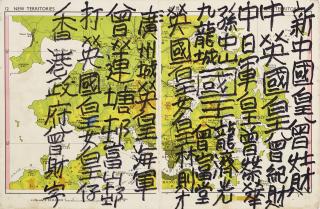 12 NEW TERRITORIES
新中國皇曾灶財
中英國皇曾紀財
中日軍皇曾榮華
孫中山國王龍濟光
九龍城曾富堂
英國皇女皇林則
廣州城英皇海軍
曾運塘邨富邨
打英國皇女皇仔
香港政府曾財